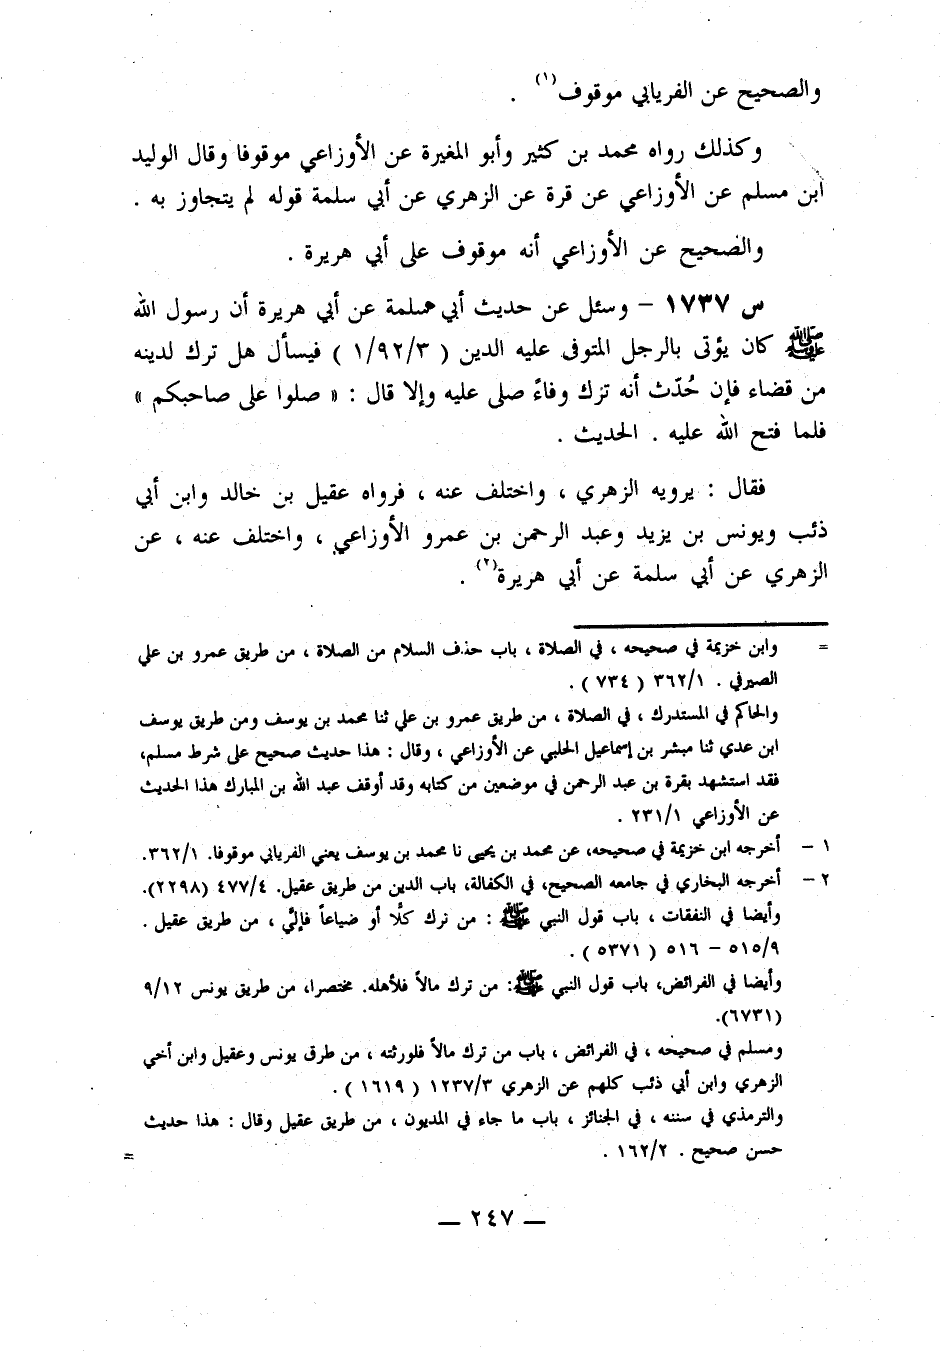 والصحيح عن الفريابي موقوف(١) .
وكذلك رواه محمد بن كثير وأبو المغيرة عن الأوزاعي موقوفا وقال الوليد
ابن مسلم عن الأوزاعي عن قرة عن الزهري عن أبي سلمة قوله لم يتجاوز به .
والصحيح عن الأوزاعي أنه موقوف على أبي هريرة .
س ١٧٣٧ – وسئل عن حديث أبي سلمة عن أبي هريرة أن رسول الله
ﷺ كان يؤتى بالرجل المتوفى عليه الدين ( ١/٩٢/٣ ) فيسأل هل ترك لدينه
من قضاء فإن حُدّث أنه ترك وفاءً صلى عليه وإلا قال : « صلوا على صاحبكم »
فلما فتح الله عليه . الحديث .
فقال : يرويه الزهري ، واختلف عنه ، فرواه عقيل بن خالد وابن أبي
ذئب ويونس بن يزيد وعبد الرحمن بن عمرو الأوزاعي ، واختلف عنه ، عن
الزهري عن أبي سلمة عن أبي هريرة(٢) .
= وابن خزيمة في صحيحه ، في الصلاة ، باب حذف السلام من الصلاة ، من طريق عمرو بن علي
الصيرفي . ٣٦٢/١ ( ٧٣٤ ) .
والحاكم في المستدرك ، في الصلاة ، من طريق عمرو بن علي ثنا محمد بن يوسف ومن طريق يوسف
ابن عدي ثنا مبشر بن إسماعيل الحلبي عن الأوزاعي ، وقال : هذا حديث صحيح على شرط مسلم،
فقد استشهد بقرة بن عبد الرحمن في موضعين من كتابه وقد أوقف عبد الله بن المبارك هذا الحديث
عن الأوزاعي ٢٣١/١ .
١ – أخرجه ابن خزيمة في صحيحه، عن محمد بن يحيى نا محمد بن يوسف يعني الفريابي موقوفا. ٣٦٢/١.
٢ – أخرجه البخاري في جامعه الصحيح، في الكفالة، باب الدين من طريق عقيل. ٤٧٧/٤ (٢٢٩٨).
وأيضا في النفقات ، باب قول النبي ﷺ : من ترك كلًّا أو ضياعاً فإليَّ ، من طريق عقيل .
٥١٥/٩ – ٥١٦ ( ٥٣٧١ ) .
وأيضا في الفرائض، باب قول النبي ﷺ: من ترك مالاً فلأهله. مختصرا، من طريق يونس ٩/١٢
(٦٧٣١).
ومسلم في صحيحه ، في الفرائض ، باب من ترك مالاً فلورثته ، من طرق يونس وعقيل وابن أخي
الزهري وابن أبي ذئب كلهم عن الزهري ١٢٣٧/٣ ( ١٦١٩ ) .
والترمذي في سننه ، في الجنائز ، باب ما جاء في المديون ، من طريق عقيل وقال : هذا حديث
حسن صحيح . ١٦٢/٢ . =
— ٢٤٧ —